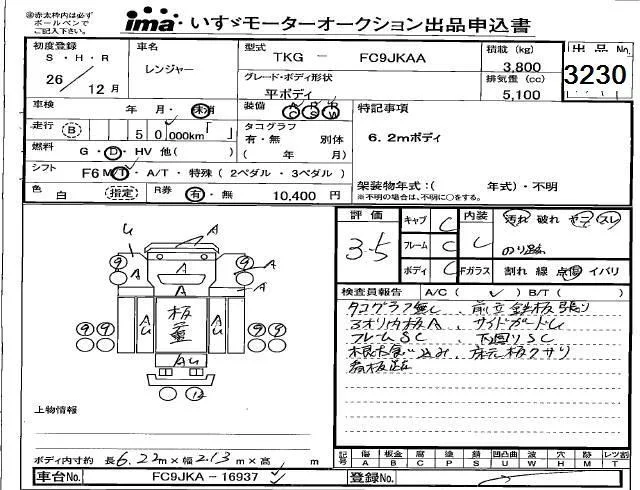 ㊟赤太枠内は必ず
ボールペンで
ご記入下さい。
ima いすゞモーターオークション出品申込書
初度登録
S・H・R
26 12月
車名
レンジャー
型式
TKG － FC9JKAA
グレード・ボディ形状
平ボディ
積載 (kg)
3,800
排気量 (cc)
5,100
出品No.
3230
車検 年 月・抹消
装備 A/C P/S P/W
特記事項
6.2mボディ
走行 (B) 50,000km
タコグラフ
有・無 別体
( 年 月)
燃料 G・D・HV 他( )
シフト F6 M/T・A/T・特殊 (2ペダル・3ペダル)
架装物年式:( 年式)・不明
※不明の場合は、不明に○をする。
色 白 (指定)
R券 有・無 10,400 円
評価
3.5
キャブ C
フレーム C
ボディ C
内装
汚れ 破れ ヤニ スレ
のり跡
Fガラス 割れ 線 点傷 イバリ
検査員報告 A/C( ✓ ) B/T( )
タコグラフ無し、前立鉄板張り
3オリ内板A、サイドガードU
フレームSC、下廻りSC
床元板クサリ
看板跡
U A
9 9
A A
A
A
Au 板 Au
9 9 9 9
Au
12
上物情報
ボディ内寸約 長6.22m×幅2.13m×高 m
記号 傷 A 板金 B 腐 C 塗 P 錆 S 凹凸曲 U 波 W 穴 H 跡 M レツ割 T
車台No. FC9JKA－16937 ✓
登録No.